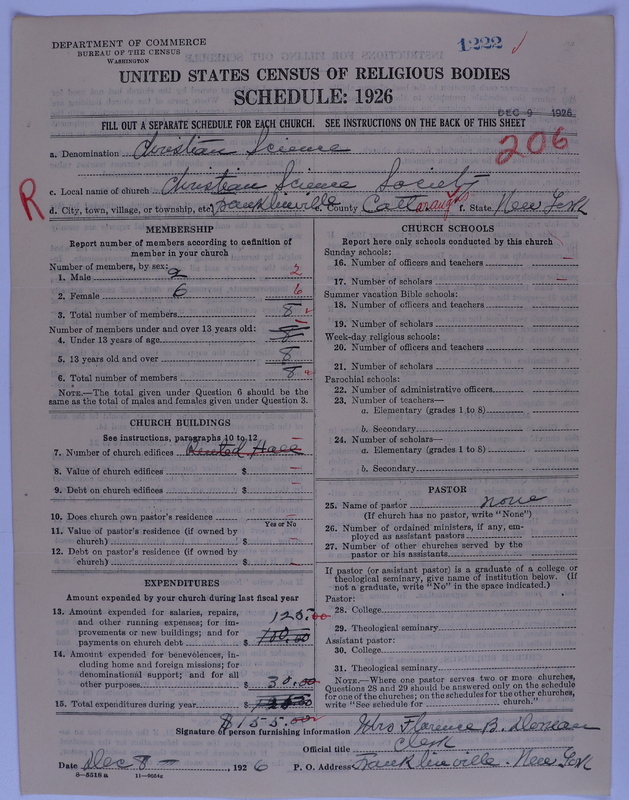 DEPARTMENT OF COMMERCE
BUREAU OF THE CENSUS
WASHINGTON
1222
UNITED STATES CENSUS OF RELIGIOUS BODIES
SCHEDULE: 1926
DEC 9 1926
FILL OUT A SEPARATE SCHEDULE FOR EACH CHURCH. SEE INSTRUCTIONS ON THE BACK OF THIS SHEET
206
a. Denomination Christian Science
R
c. Local name of church Christian Science Society
d. City, town, village, or township, etc. Franklinville e. County Cattaraugus f. State New York
MEMBERSHIP
Report number of members according to definition of
member in your church
Number of members, by sex:
1. Male 2 2
2. Female 6 6
3. Total number of members 8
Number of members under and over 13 years old:
4. Under 13 years of age 8
5. 13 years old and over 8
6. Total number of members 8
NOTE.—The total given under Question 6 should be
same as the total of males and females given under Question 3.
CHURCH BUILDINGS
See instructions, paragraphs 10 to 12
7. Number of church edifices Rented Hall
8. Value of church edifices $ —
9. Debt on church edifices $ —
10. Does church own pastor's residence —
Yes or No
11. Value of pastor's residence (if owned by
church) $ —
12. Debt on pastor's residence (if owned by
church) $ —
EXPENDITURES
Amount expended by your church during last fiscal year
13. Amount expended for salaries, repairs,
and other running expenses; for im-
provements or new buildings; and for
payments on church debt $ 125.00
14. Amount expended for benevolences, in-
cluding home and foreign missions; for
denominational support; and for all
other purposes $ 30.00
15. Total expenditures during year $
$155.00
CHURCH SCHOOLS
Report here only schools conducted by this church
Sunday schools:
16. Number of officers and teachers —
17. Number of scholars —
Summer vacation Bible schools:
18. Number of officers and teachers
19. Number of scholars
Week-day religious schools:
20. Number of officers and teachers
21. Number of scholars
Parochial schools:
22. Number of administrative officers
23. Number of teachers—
a. Elementary (grades 1 to 8)
b. Secondary
24. Number of scholars—
a. Elementary (grades 1 to 8)
b. Secondary
PASTOR
25. Name of pastor none
(If church has no pastor, write "None")
26. Number of ordained ministers, if any, em-
ployed as assistant pastors
27. Number of other churches served by the
pastor or his assistants
If pastor (or assistant pastor) is a graduate of a college or
theological seminary, give name of institution below. (If
not a graduate, write "No" in the space indicated.)
Pastor:
28. College
29. Theological seminary
Assistant pastor:
30. College
31. Theological seminary
NOTE.—Where one pastor serves two or more churches,
Questions 28 and 29 should be answered only on the schedule
for one of the churches; on the schedules for the other churches,
write "See schedule for church."
Signature of person furnishing information Mrs Florence B.
Official title Clerk
Date Dec 8 —, 1926 P. O. Address Franklinville. New York
8—5518 a 11—9064a